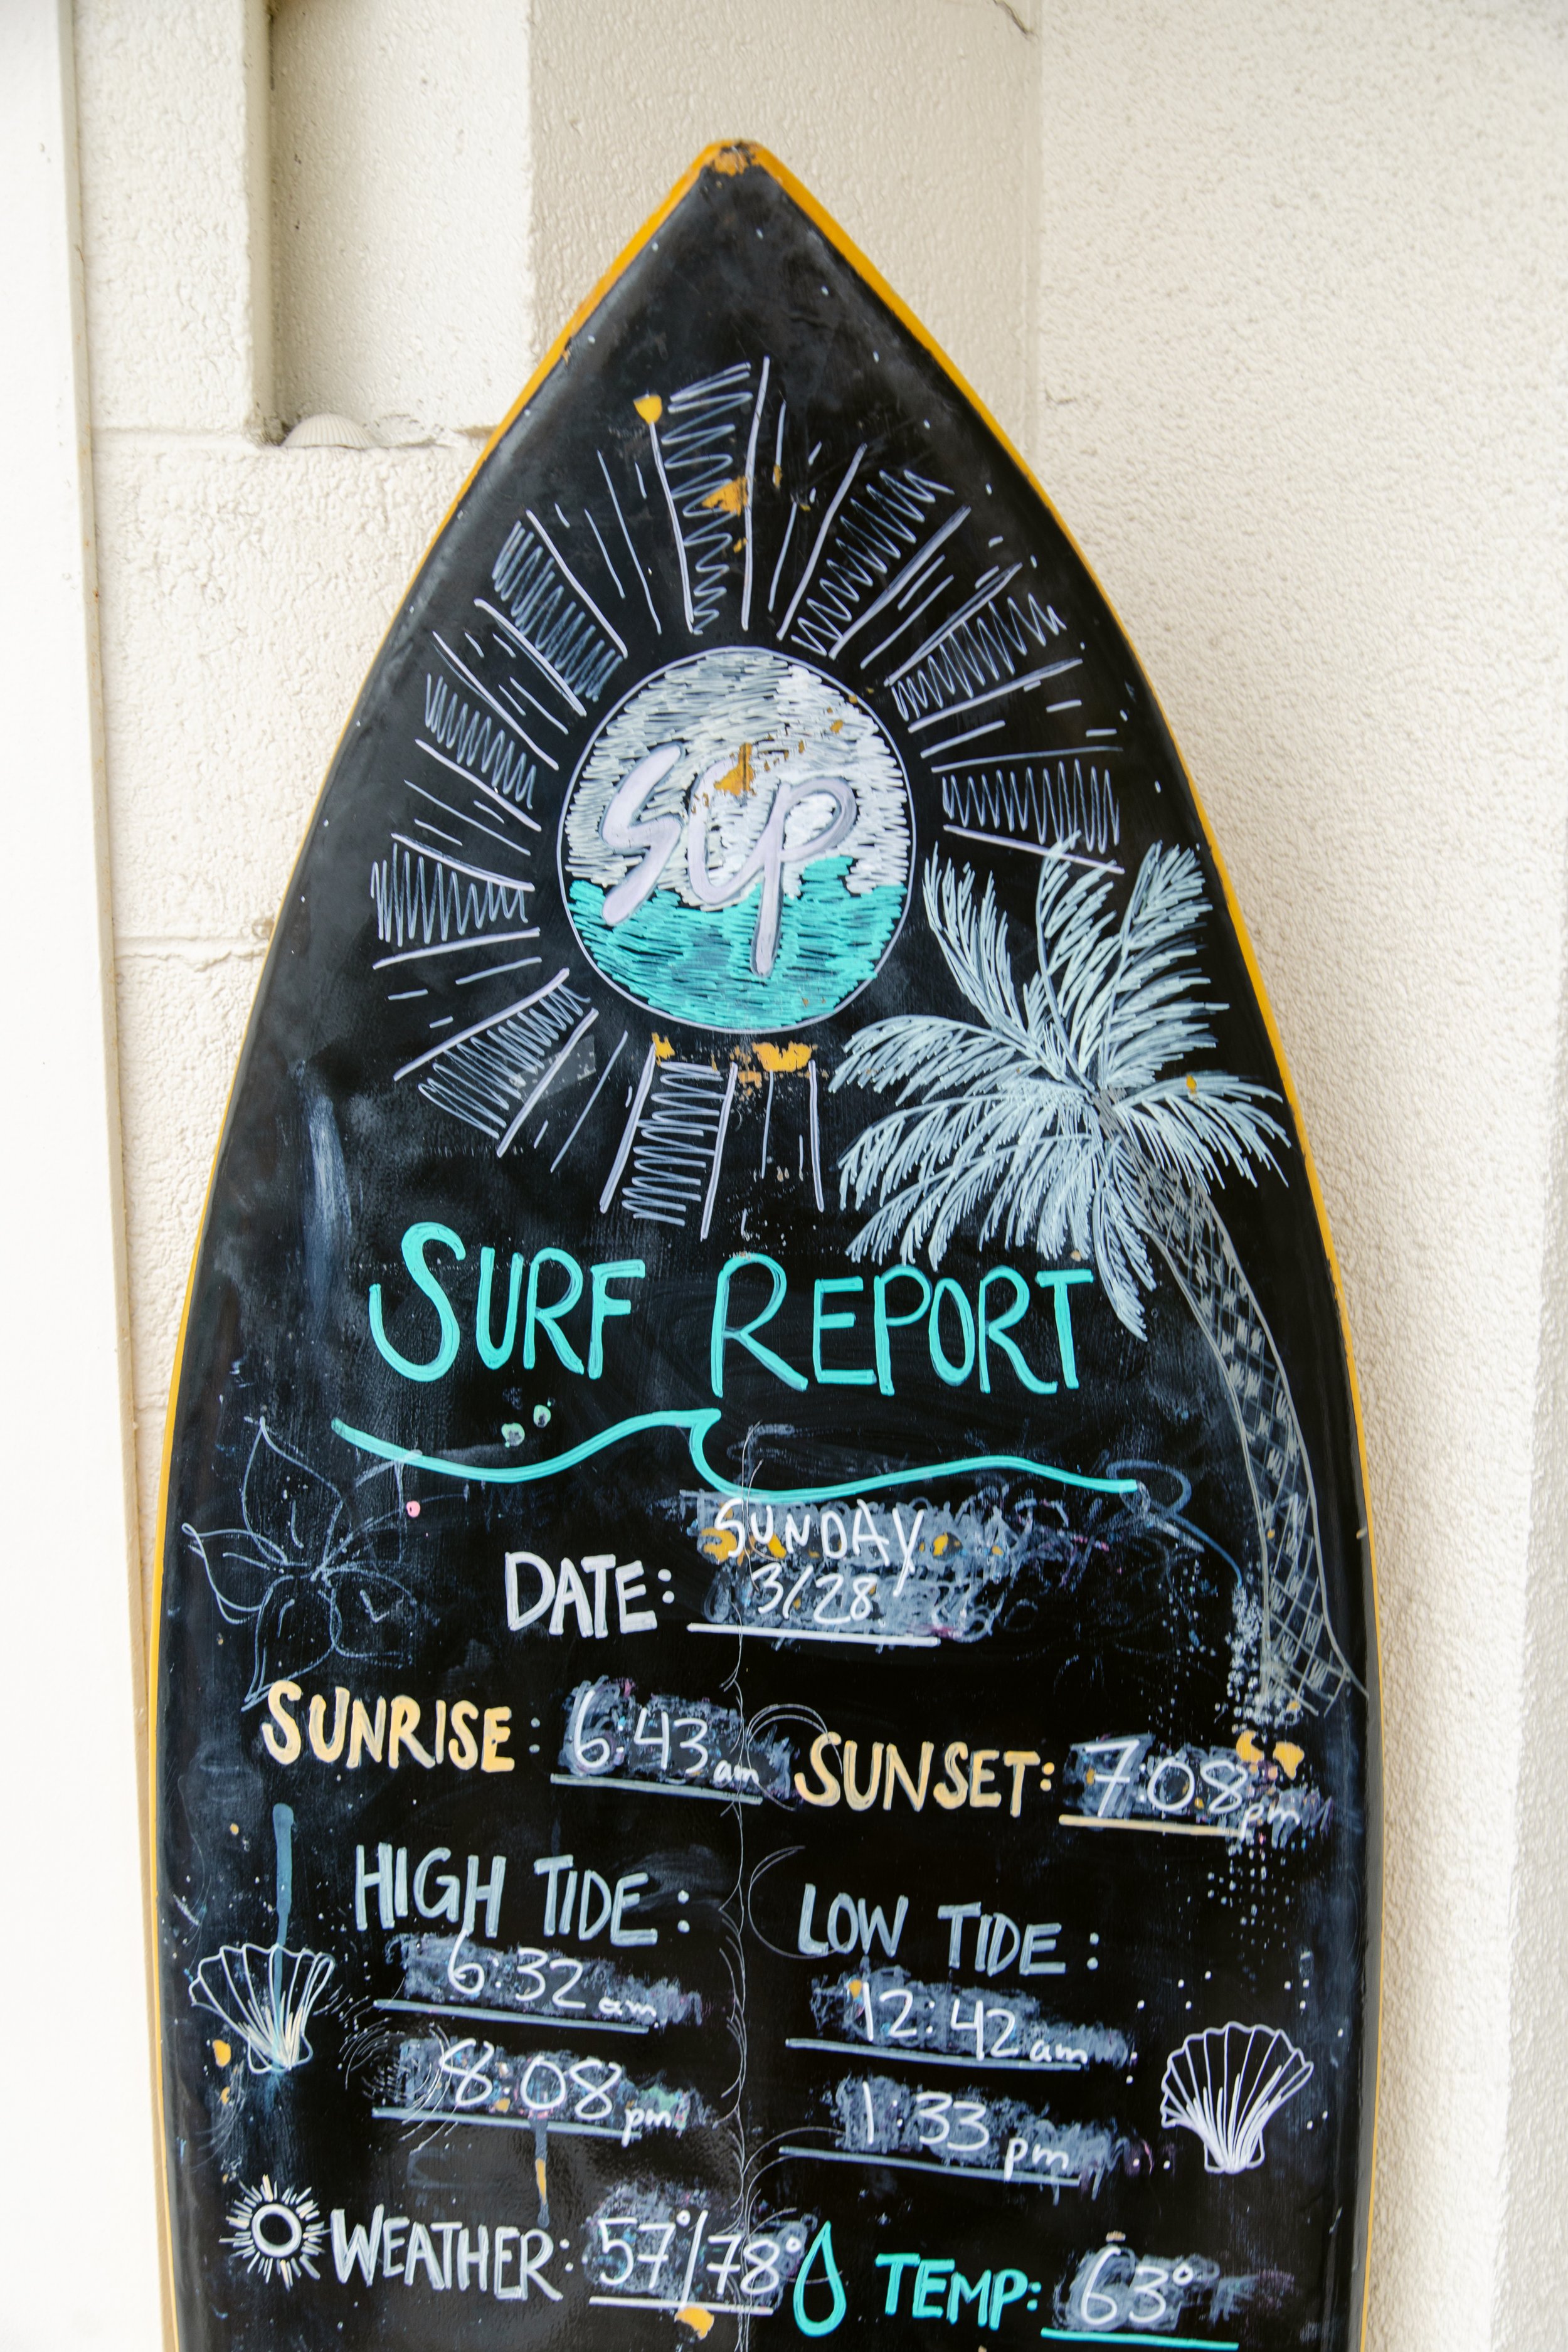 SCP
SURF REPORT
DATE: SUNDAY 3/28
SUNRISE: 6:43 am SUNSET: 7:08 pm
HIGH TIDE: LOW TIDE:
6:32 am 12:42 am
8:08 pm 1:33 pm
WEATHER: 57°/78° TEMP: 63°